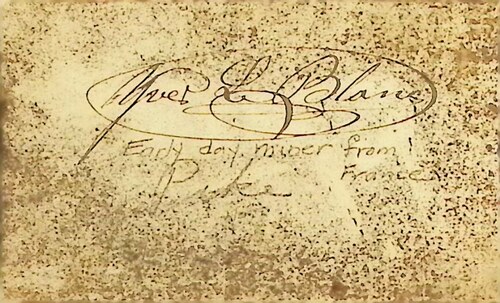 Yves Le Blanc
Early day miner from
France